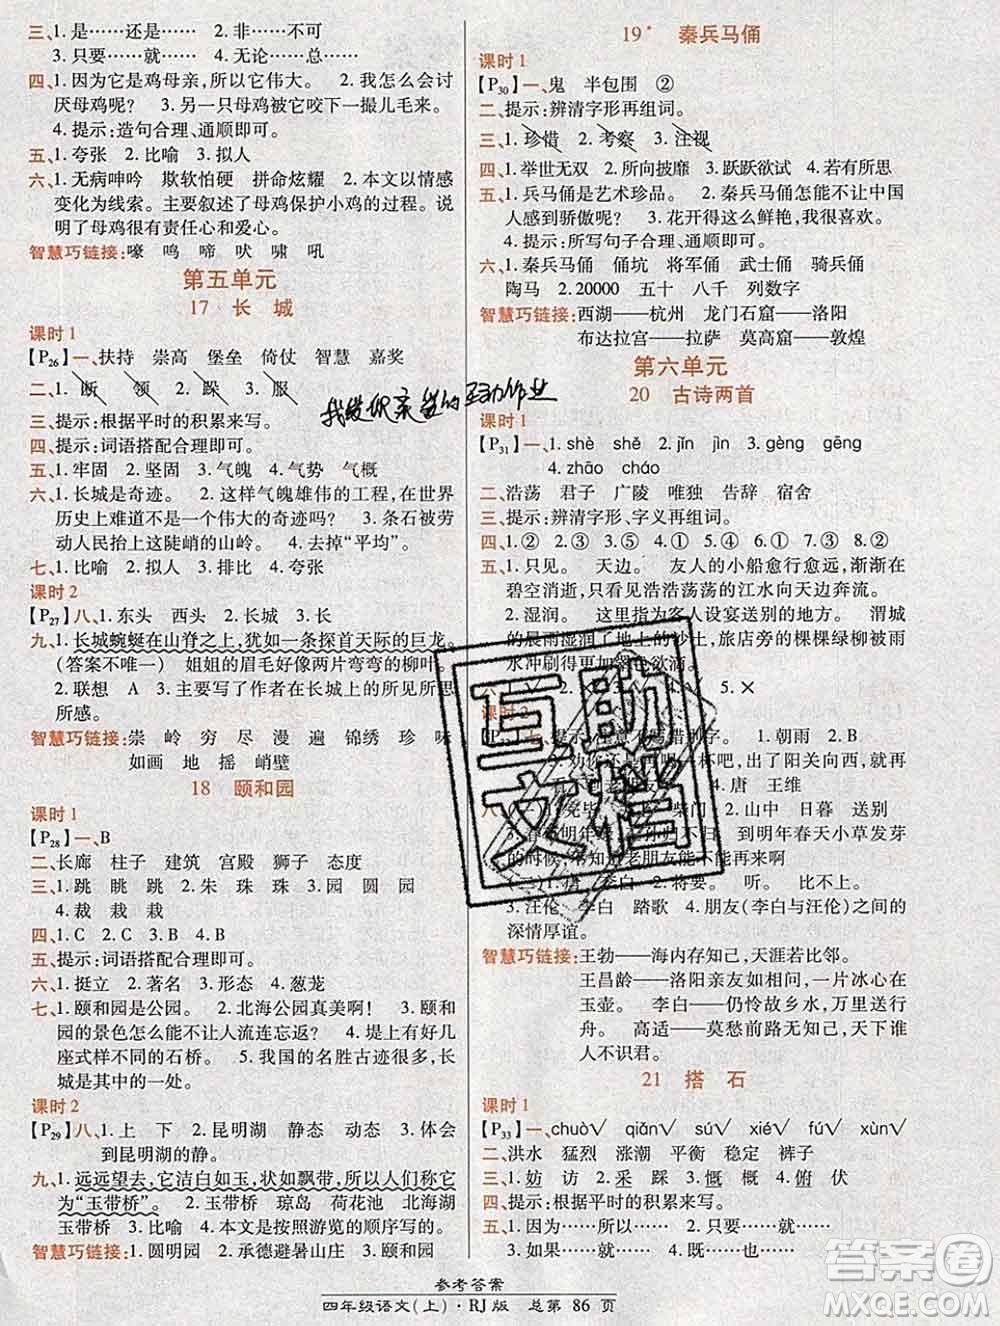 三、1.是……还是…… 2.非……不可
3.只要……就…… 4.无论……总……
四、1.因为它是鸡母亲,所以它伟大。 2.我怎么会讨
厌母鸡呢? 3.另一只母鸡被它咬下一撮儿毛来。
4.提示:造句合理、通顺即可。
五、1.夸张 2.比喻 3.拟人
六、1.无病呻吟 欺软怕硬 拼命炫耀 2.本文以情感
变化为线索。主要叙述了母鸡保护小鸡的过程。说
明了母鸡很有责任心和爱心。
智慧巧链接:嚎 鸣 啼 吠 啸 吼
第五单元
17 长 城
课时1
【P26】一、扶持 崇高 堡垒 倚仗 智慧 嘉奖
二、1.断 领 2.跺 3.服
三、提示:根据平时的积累来写。
四、提示:词语搭配合理即可。
五、1.牢固 2.坚固 3.气魄 4.气势 气概
六、1.长城是奇迹。 2.这样气魄雄伟的工程,在世界
历史上难道不是一个伟大的奇迹吗? 3.条石被劳
动人民抬上这陡峭的山岭。 4.去掉“平均”。
七、1.比喻 2.拟人 3.排比 4.夸张
课时2
【P27】八、1.东头 西头 2.长城 3.长
九、1.长城蜿蜒在山脊之上,犹如一条探首天际的巨龙。
(答案不唯一) 姐姐的眉毛好像两片弯弯的柳叶。
2.联想 A 3.主要写了作者在长城上的所见所思
所感。
智慧巧链接:崇 岭 穷 尽 漫 遍 锦绣 珍 味
如画 地 摇 峭壁
18 颐和园
课时1
【P28】一、B
二、长廊 柱子 建筑 宫殿 狮子 态度
三、1.跳 眺 跳 2.朱 珠 珠 3.园 圆 园
4.裁 栽 栽
四、1.C 2.C 3.A 4.B
五、提示:词语搭配合理即可。
六、1.挺立 2.著名 3.形态 4.葱茏
七、1.颐和园是公园。 2.北海公园真美啊! 3.颐和
园的景色怎么能不让人流连忘返? 4.堤上有好几
座式样不同的石桥。 5.我国的名胜古迹很多,长
城是其中的一处。
课时2
【P29】八、1.上 下 2.昆明湖 静态 动态 3.体会
到昆明湖的静。
九、1.远远望去,它洁白如玉,状如飘带,所以人们称它
为“玉带桥”。 2.玉带桥 琼岛 荷花池 北海湖
玉带桥 3.比喻 4.本文是按照游览的顺序写的。
智慧巧链接:1.圆明园 2.承德避暑山庄 3.颐和园
19* 秦兵马俑
课时1
【P30】一、鬼 半包围 ②
二、提示:辨清字形再组词。
三、1.珍惜 2.考察 3.注视
四、1.举世无双 2.所向披靡 3.跃跃欲试 4.若有所思
五、1.兵马俑是艺术珍品。 2.秦兵马俑怎能不让中国
人感到骄傲呢? 3.花开得这么鲜艳,我很喜欢。
4.提示:所写句子合理、通顺即可。
六、1.秦兵马俑 俑坑 将军俑 武士俑 骑兵俑
陶马 2.20000 五十 八千 列数字
智慧巧链接:西湖——杭州 龙门石窟——洛阳
布达拉宫——拉萨 莫高窟——敦煌
第六单元
20 古诗两首
课时1
【P31】一、1.shè shě 2.jǐn jìn 3.gèng gēng
4.zhāo cháo
二、浩荡 君子 广陵 唯独 告辞 宿舍
三、提示:辨清字形、字义再组词。
四、1.② 2.③ 3.⑤ 4.① 5.④ 6.⑥ 7.⑦ 8.①
五、1.只见。 天边。 友人的小船愈行愈远,渐渐在
碧空消逝,只看见浩浩荡荡的江水向天边奔流。
2.湿润。 这里指为客人设宴送别的地方。 渭城
的晨雨湿润了地上的沙土,旅店旁的棵棵绿柳被雨
水冲刷得更加翠色欲滴。
4.√ 5.×
1.朝雨 2.B
杯吧,出了阳关向西,就
4.唐 王维
柴门 2.山中 日暮 送别
到明年春天小草发芽
的时候,你知道老朋友能不能再回来。
李白 2.将要。 听。
3.汪伦 李白 踏歌 4.朋友(李白与汪伦)之间的
深情厚谊。
智慧巧链接:王勃——海内存知己,天涯若比邻。
王昌龄——洛阳亲友如相问,一片冰心在
玉壶。 李白——仍怜故乡水,万里送行
舟。 高适——莫愁前路无知己,天下谁
人不识君。
21 搭 石
课时1
【P33】一、chuò√ qiǎn√ sù√ xié√ fú√ xùn√
二、洪水 猛烈 涨潮 平衡 稳定 裤子
三、1.妨 访 2.采 踩 3.慨 概 4.俯 伏
四、提示:根据平时的积累来写。
五、1.因为……所以…… 2.只要……就……
3.如果……就…… 4.既……也……
互助
文档
参考答案
四年级语文(上)·RJ版 总第 86 页
答案圈
MXQE.COM